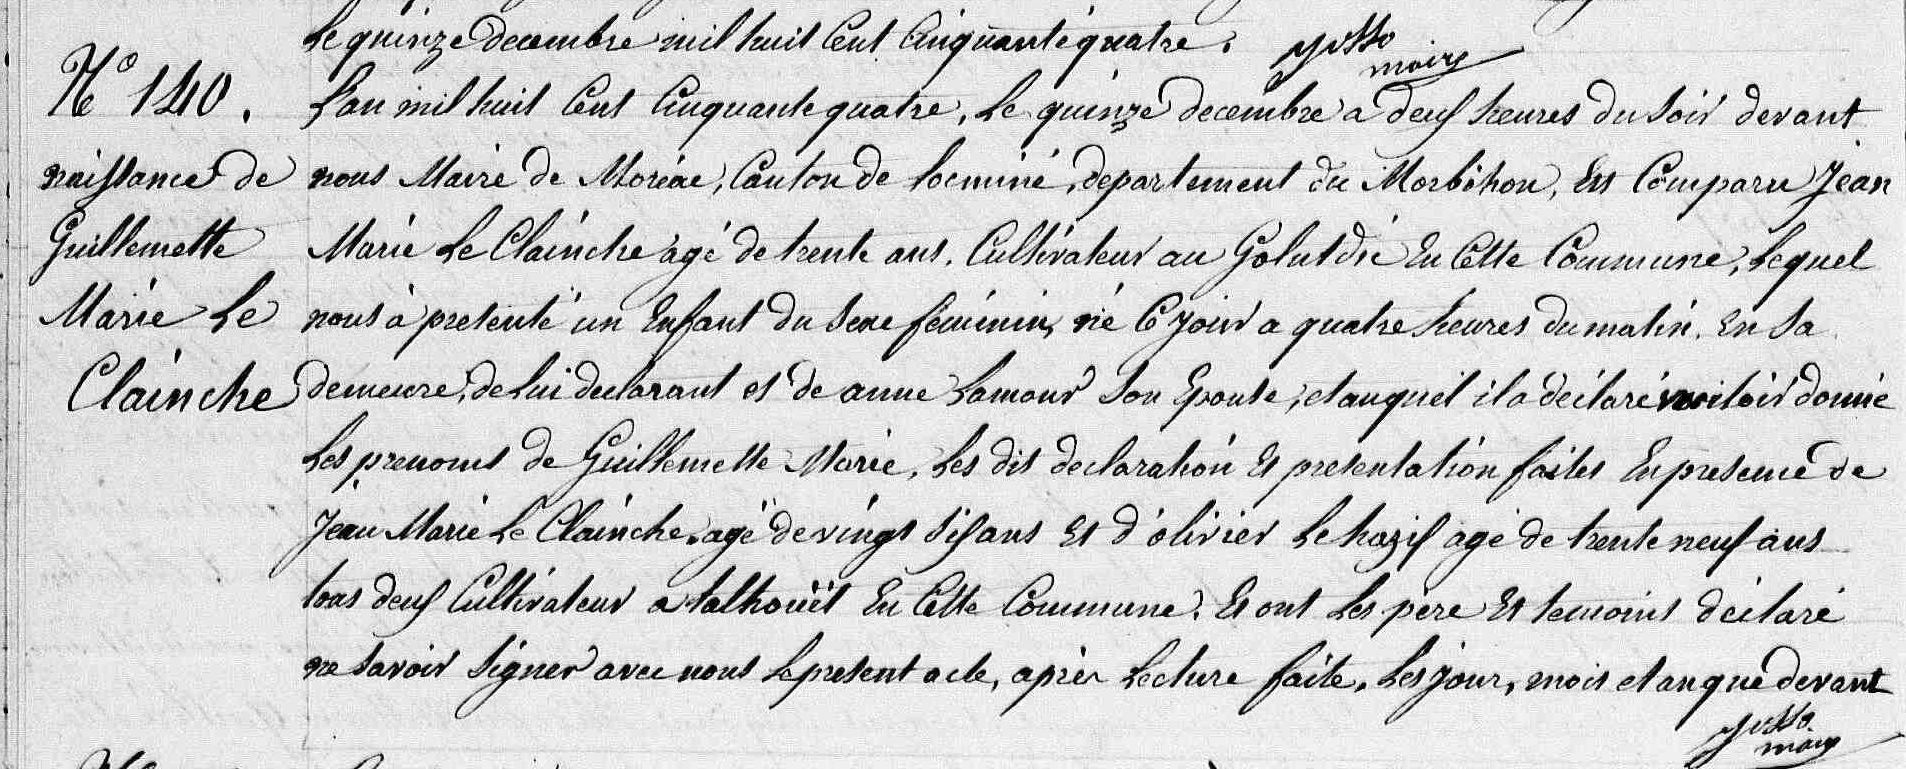 Le quinze decembre mil huit Cent Cinquante quatre.
Yvsso
maire
N° 140.
naissance de
Guillemette
Marie Le
Clainche
L'an mil huit Cent Cinquante quatre, Le quinze decembre a deux heures du Soir devant
nous Maire de Moréac, Canton de locminé, departement du Morbihan, Est Comparu Jean
Marie Le Clainche agé de trente ans, Cultivateur au Golut dié En Cette Commune, Lequel
nous à presenté un Enfant du Sexe féminin, né Ce jour a quatre heures du matin, En Sa
demeure, de Lui declarant et de anne Lamour Son Epouse, et auquel il a déclaré vouloir donné
Les prenoms de Guillemette Marie, Les dit declaration Et presentation faites En presence de
Jean Marie Le Clainche, agé de vingt Six ans Et d'olivier Le hazif agé de trente neuf ans
tous deux Cultivateur a talhouët En Cette Commune. Et ont Les père Et temoins déclaré
ne Savoir Signer avec nous Le present acte, après Lecture faite, Les jour, mois et an que devant
maire